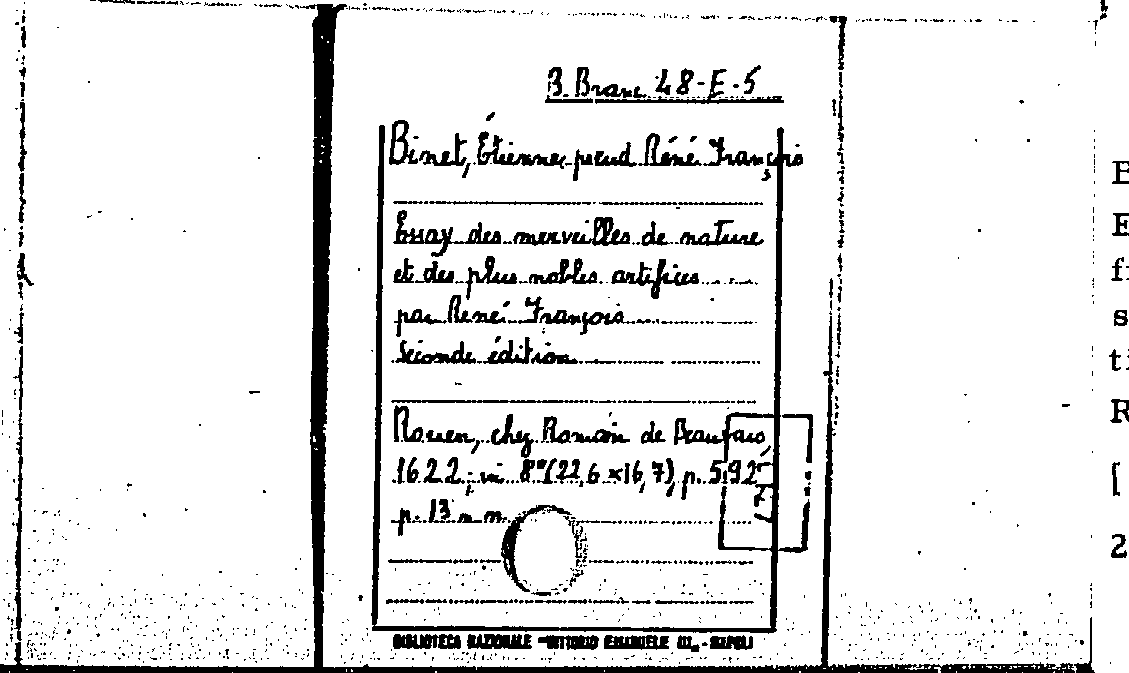 B. Branc 48-E-5
Binet, Étienne, pseud René François
Essay des merveilles de nature
et des plus nobles artifices
par René François
Seconde édition
Rouen, chez Romain de Beauvais,
1622; in 8° (22,6 x 16,7), p. 592
p. 13 n n.
BIBLIOTECA NAZIONALE "VITTORIO EMANUELE III„ - NAPOLI
E
E
f
s
ti
R
[
2